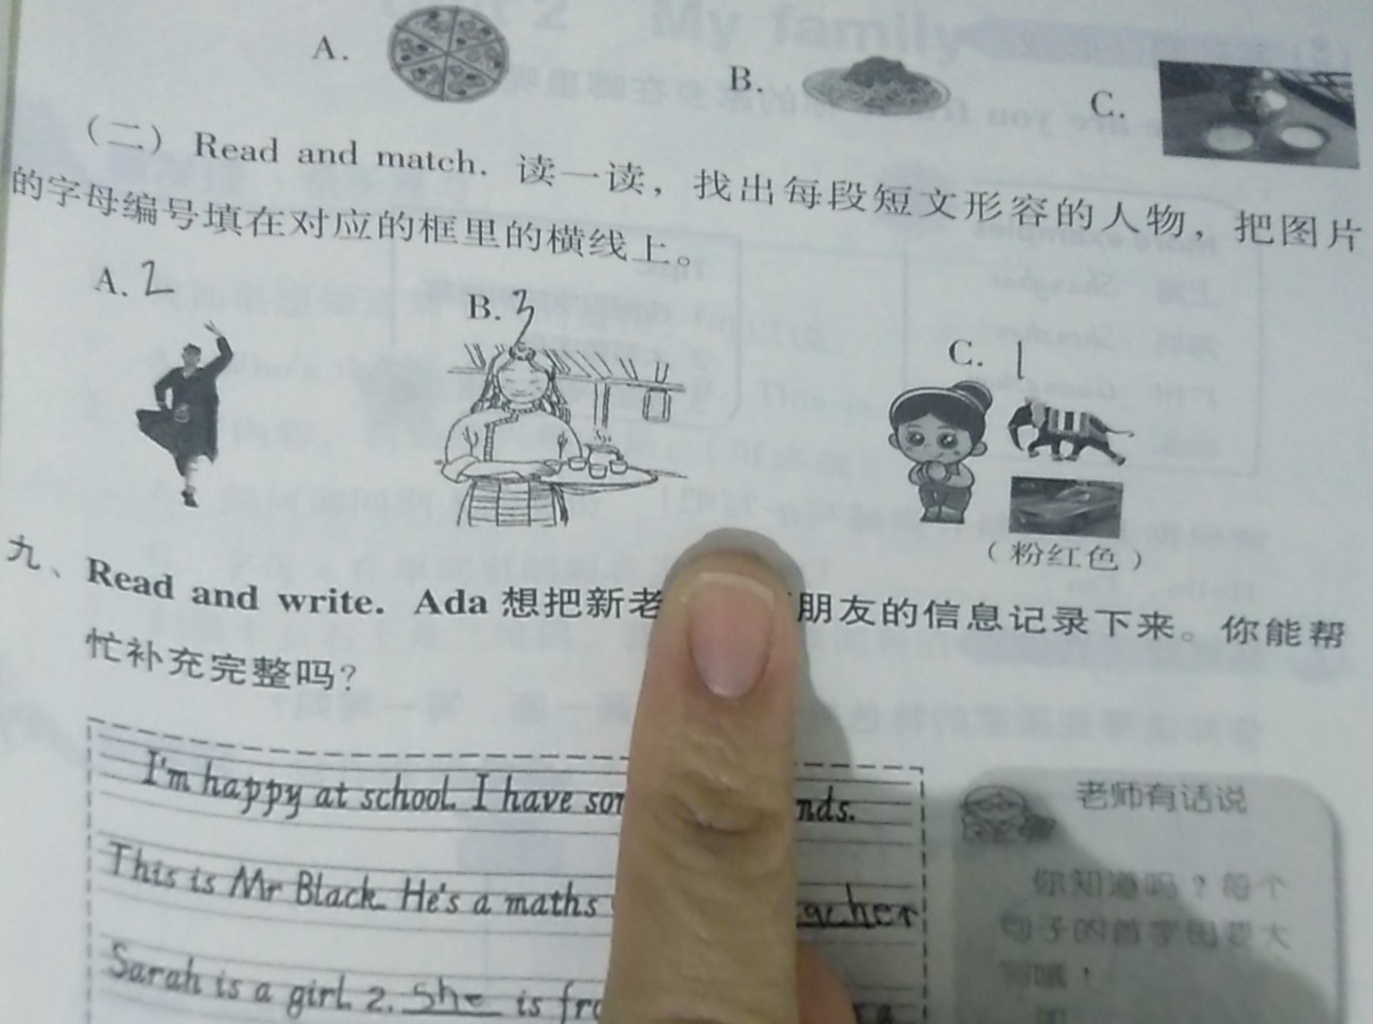 A.
B.
C.
(二) Read and match. 读一读，找出每段短文形容的人物，把图片
的字母编号填在对应的框里的横线上。
A. 2
B. 3
C. 1
(粉红色)
九、Read and write. Ada 想把新老 朋友的信息记录下来。你能帮
忙补充完整吗?
I'm happy at school. I have
This is Mr Black. He's a maths
Sarah is a girl. 2. She is
老师有话说
你知道吗？每个
句子的首字母要大
写哦，